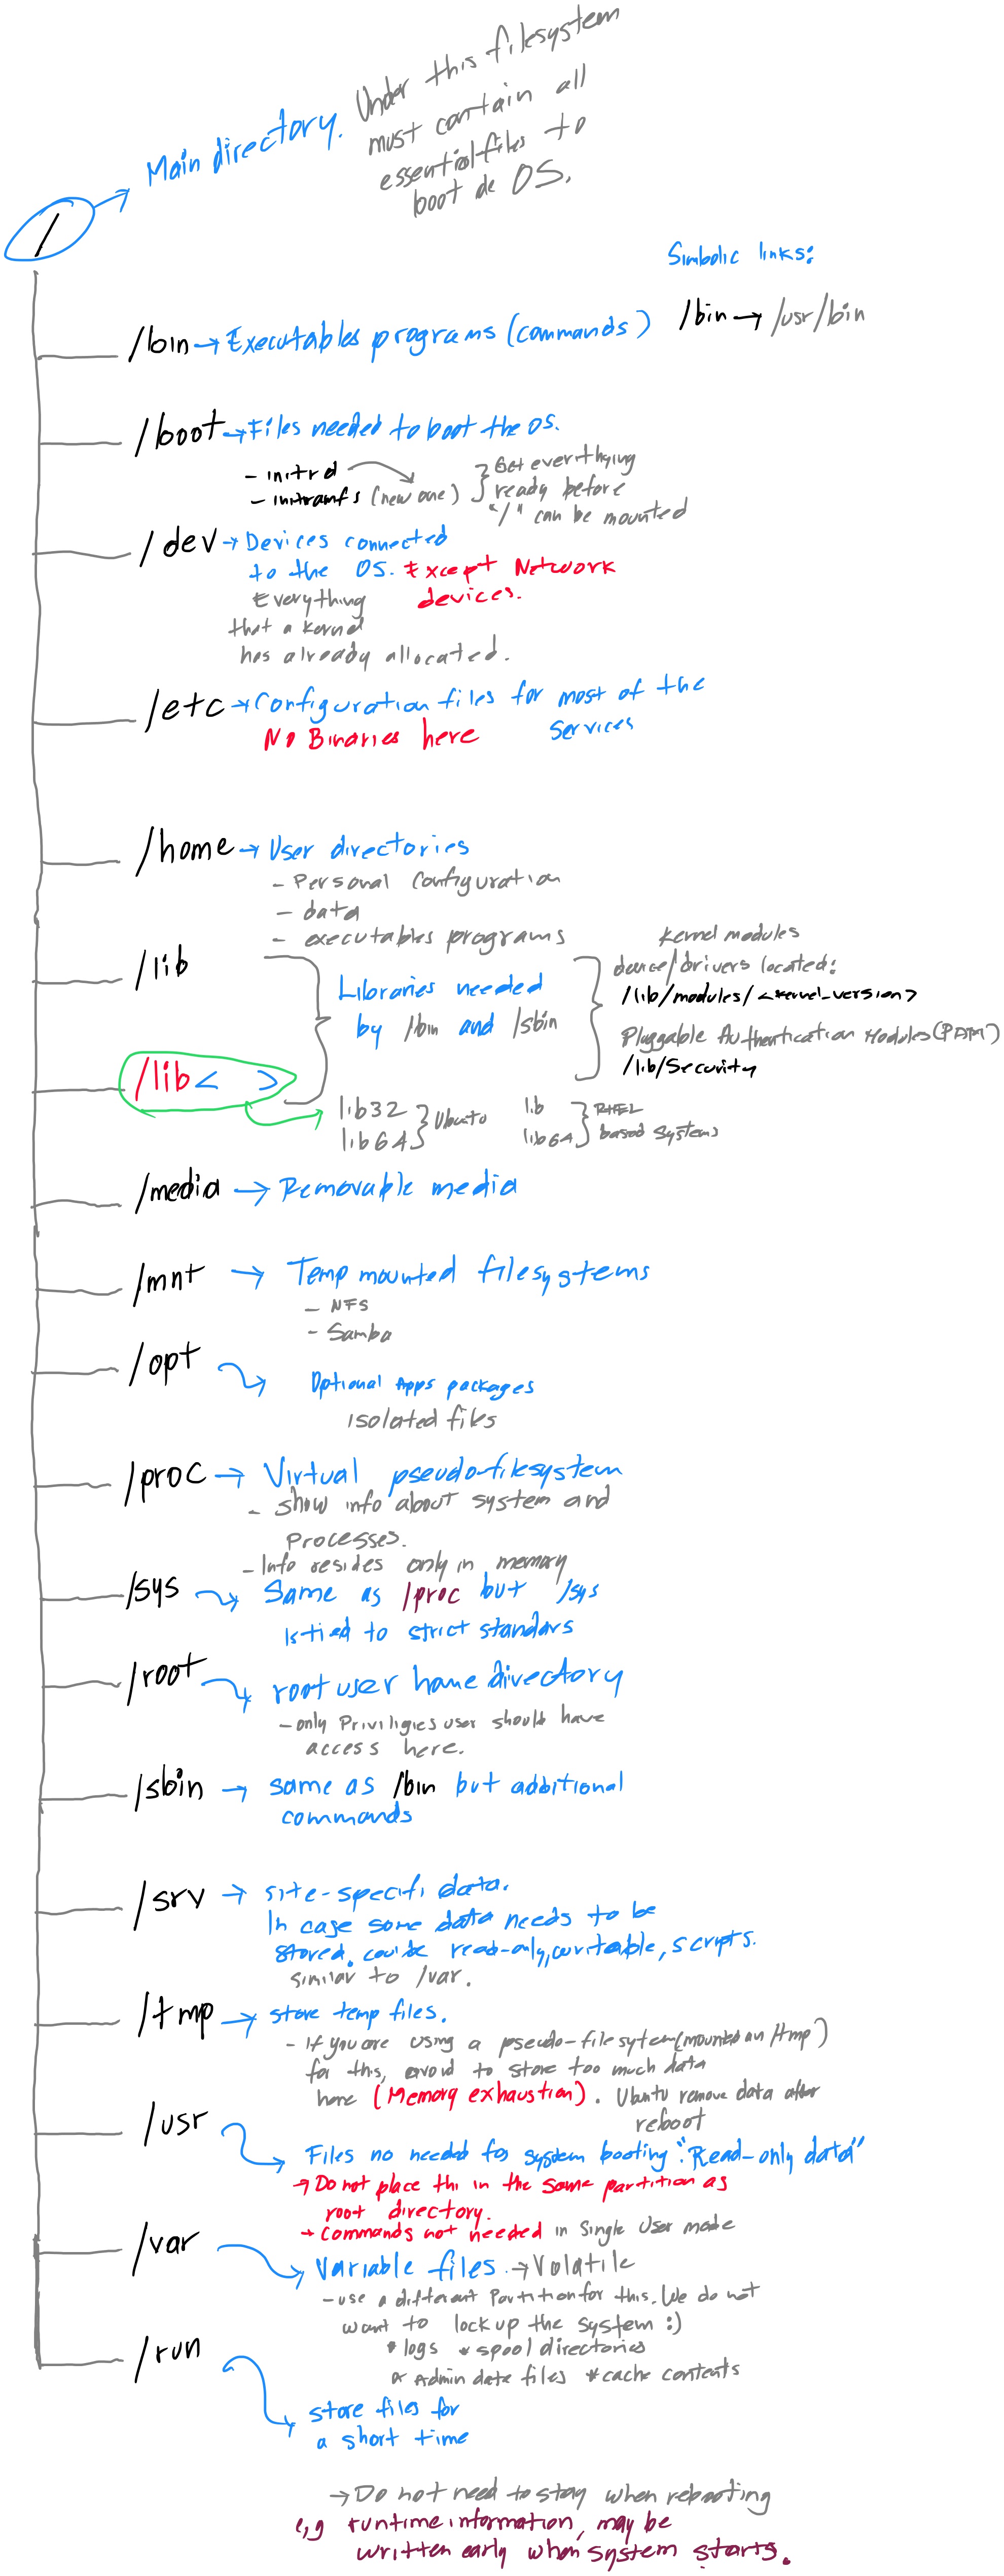 /
Main directory. Under this filesystem
must contain all
essential files to
boot de OS.
Simbolic links:
/bin → /usr/bin
/bin → Executables programs (commands)
/boot → Files needed to boot the OS.
- initrd
- initramfs (new one)
Get everithying
ready before
"/" can be mounted
/dev → Devices connected
to the OS. Except Network
devices.
Everything
that a kernel
has already allocated.
/etc → Configuration files for most of the
services
No Binaries here
/home → User directories
- Personal configuration
- data
- executables programs
/lib
/lib< >
Libraries needed
by /bin and /sbin
kernel modules
device/drivers located:
/lib/modules/<kernel-version>
Pluggable Authentication Modules (PAM)
/lib/security
lib32
lib64
Ubuto
lib
lib64
RHEL
based systems
/media → Removable media
/mnt → Temp mounted filesystems
- NFS
- Samba
/opt
Optional Apps packages
isolated files
/proc → Virtual pseudo-filesystem
- show info about system and
processes.
- Info resides only in memory
/sys → Same as /proc but /sys
is tied to strict standars
/root → root user home directory
- only Priviligies user should have
access here.
/sbin → same as /bin but additional
commands
/srv → site-specifi data.
In case some data needs to be
stored. could be read-only, writable, scripts.
similar to /var.
/tmp → store temp files.
- If you are using a pseudo-file sytem (mounted on /tmp)
for this, avoid to store too much data
here (Memory exhaustion). Ubuntu remove data after
reboot
/usr
Files no needed for system booting "Read-only data"
→ Do not place thi in the same partition as
root directory.
→ Commands not needed in Single User mode
/var
Variable files. → Volatile
- use a different Partition for this. We do not
want to lock up the system :)
* logs * spool directories
* Admin data files * cache contents
/run
store files for
a short time
→ Do not need to stay when rebooting
e,g runtime information, may be
written early when system starts.